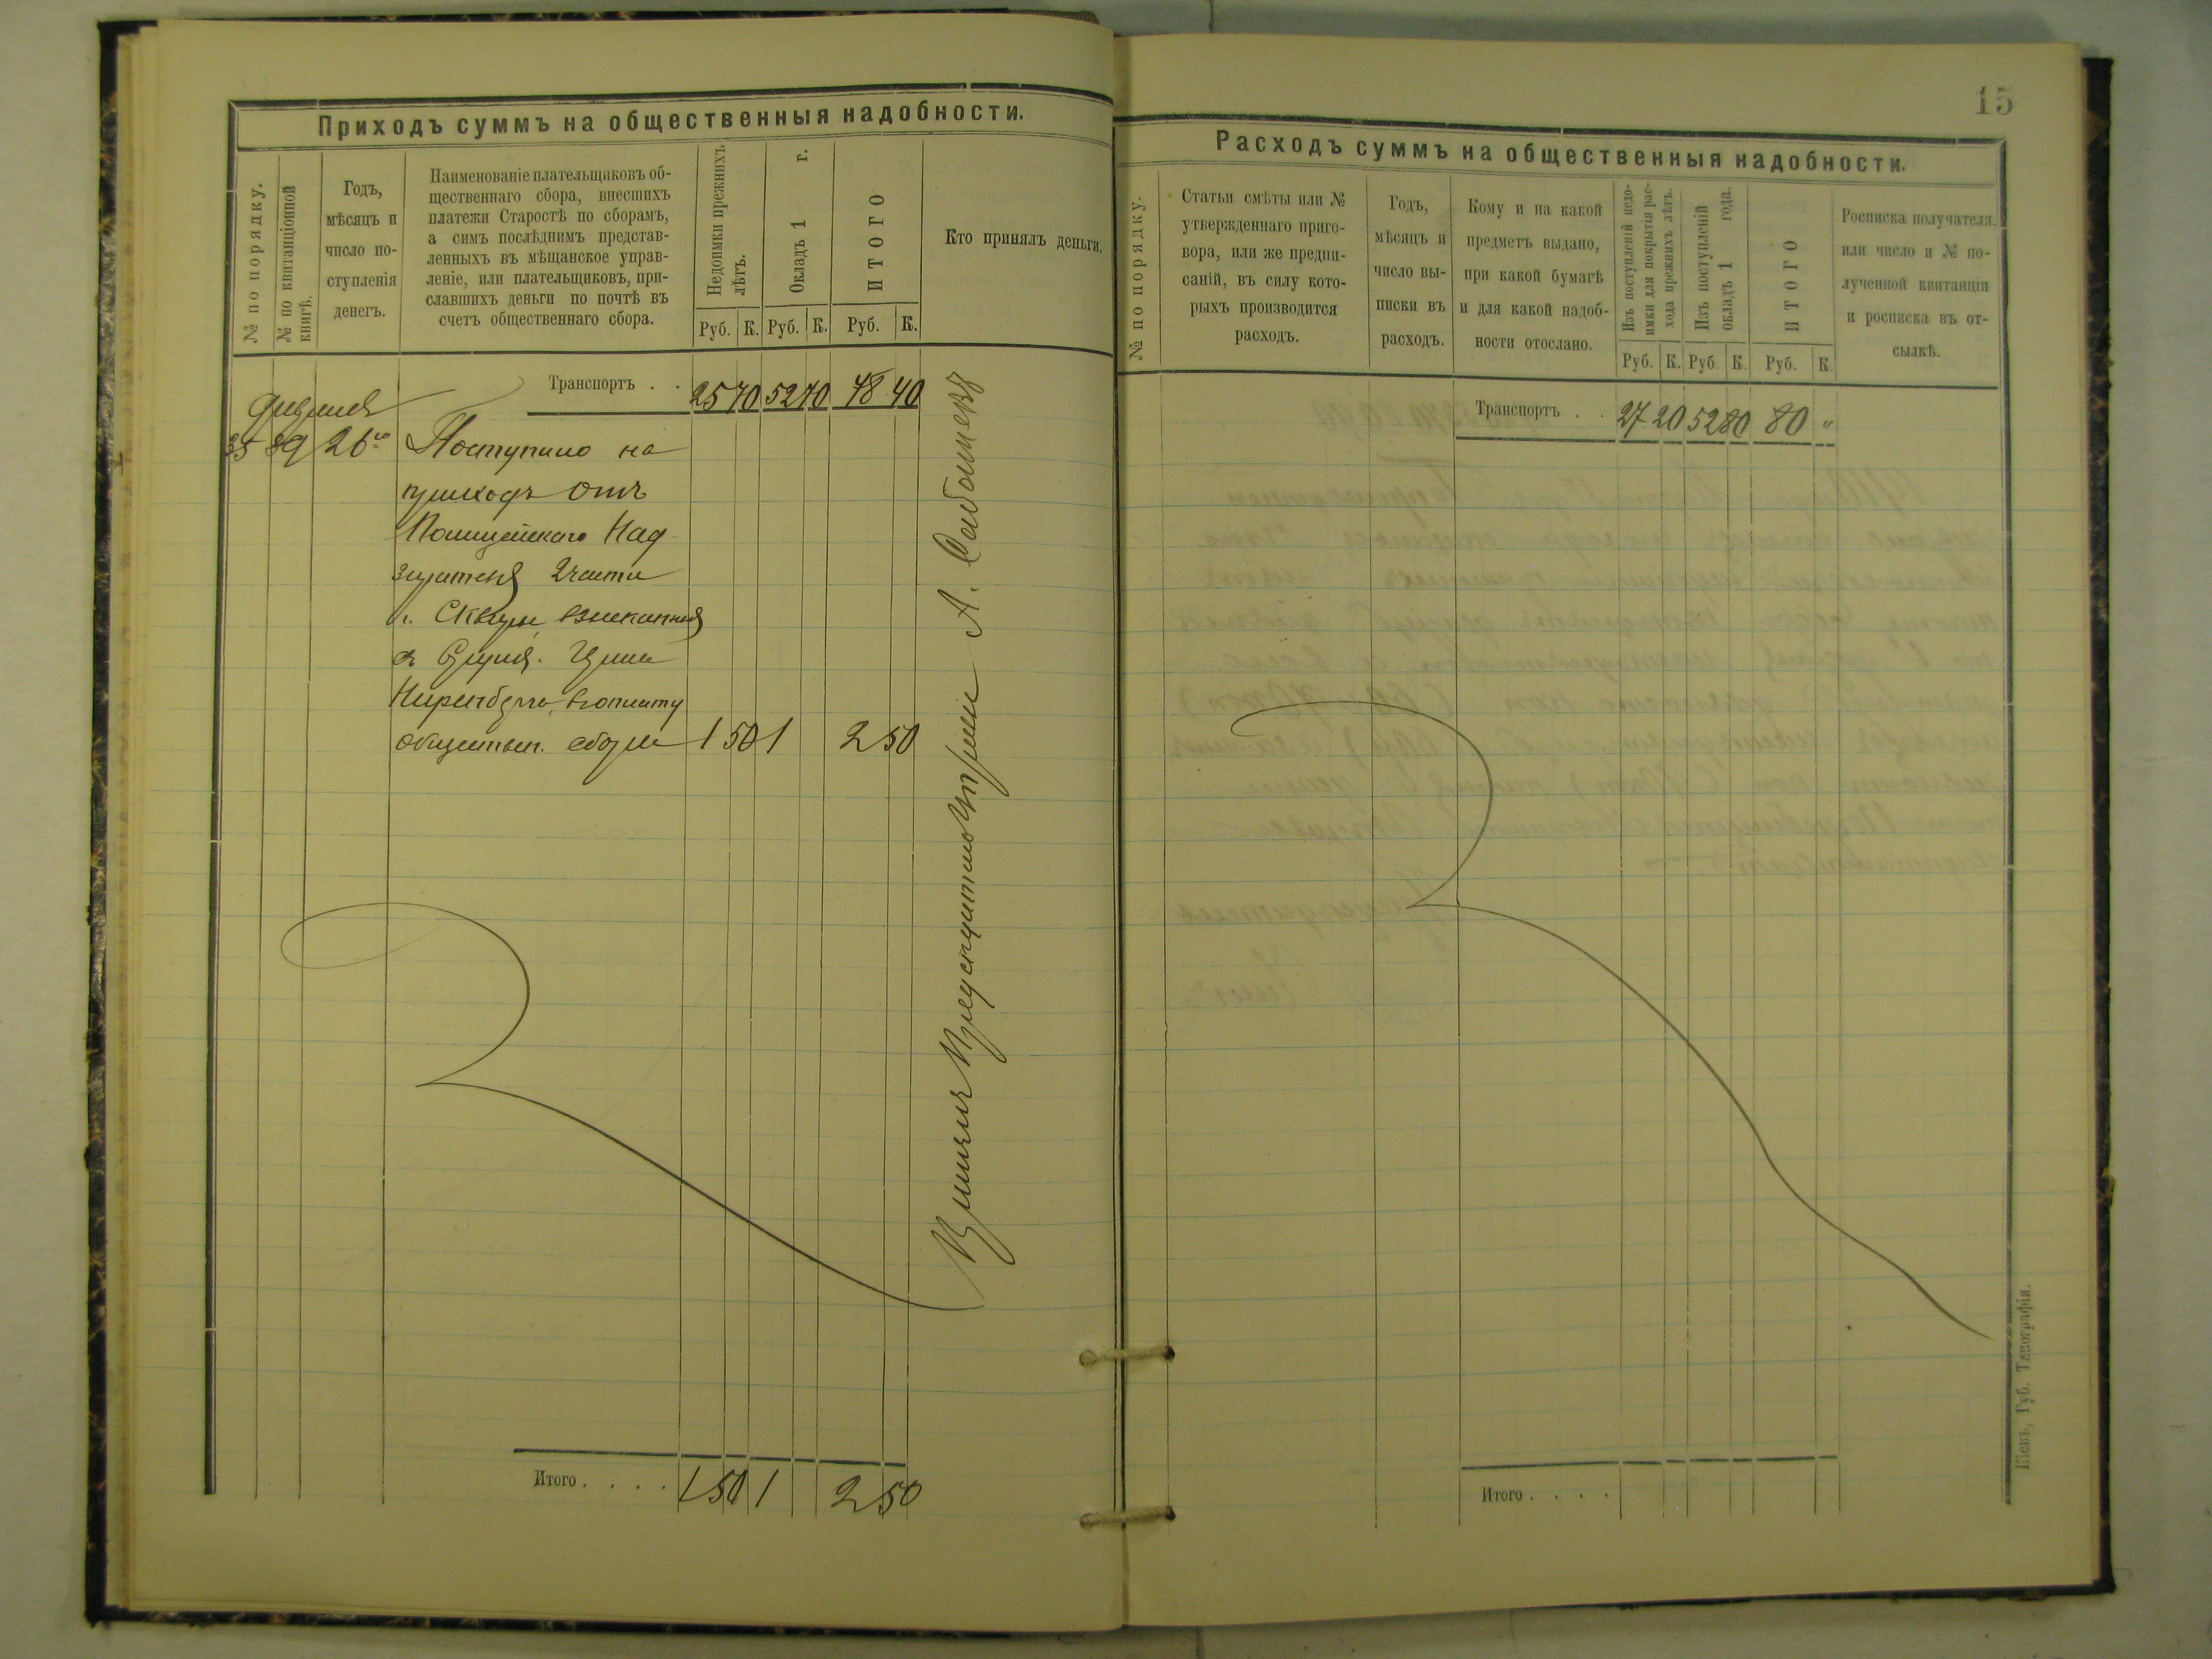 Приходъ суммъ на общественныя надобности.
№ по порядку.
№ по квитанціонной
книгѣ.
Годъ,
мѣсяцъ и
число по-
ступленія
денегъ.
Наименованіе плательщиковъ об-
щественнаго сбора, внесшихъ
платежи Старостѣ по сборамъ,
а симъ послѣднимъ представ-
ленныхъ въ мѣщанское управ-
леніе, или плательщиковъ, при-
славшихъ деньги по почтѣ въ
счетъ общественнаго сбора.
Недоимки прежнихъ
лѣтъ.
Окладъ 1 г.
ИТОГО
Руб. К. Руб. К. Руб. К.
Кто принялъ деньги.
Транспортъ . . 25 70 52 70 78 40
Февраля
35 89 26го Поступило на
приходъ отъ
Полицейскаго Над
зирателя 2 части
г. Сквиры, взысканныя
съ
Ниренберга, въ оплату
обществен. сбора 1 50 1 2 50
А.
Итого . . . . 1 50 1 2 50
15
Расходъ суммъ на общественныя надобности.
№ по порядку.
Статьи смѣты или №
утвержденнаго приго-
вора, или же предпи-
саній, въ силу кото-
рыхъ производится
расходъ.
Годъ,
мѣсяцъ и
число вы-
писки въ
расходъ.
Кому и на какой
предметъ выдано,
при какой бумагѣ
и для какой надоб-
ности отослано.
Изъ поступленій недо-
имки для покрытія рас-
хода прежнихъ лѣтъ.
Изъ поступленій
окладъ 1 года.
ИТОГО
Руб. К. Руб. К. Руб. К.
Росписка получателя.
или число и № по-
лученной квитанціи
и росписка въ от-
сылкѣ.
Транспортъ . . 27 20 52 80 80 "
Итого . . . .
Кіевъ, Губ. Типографія.